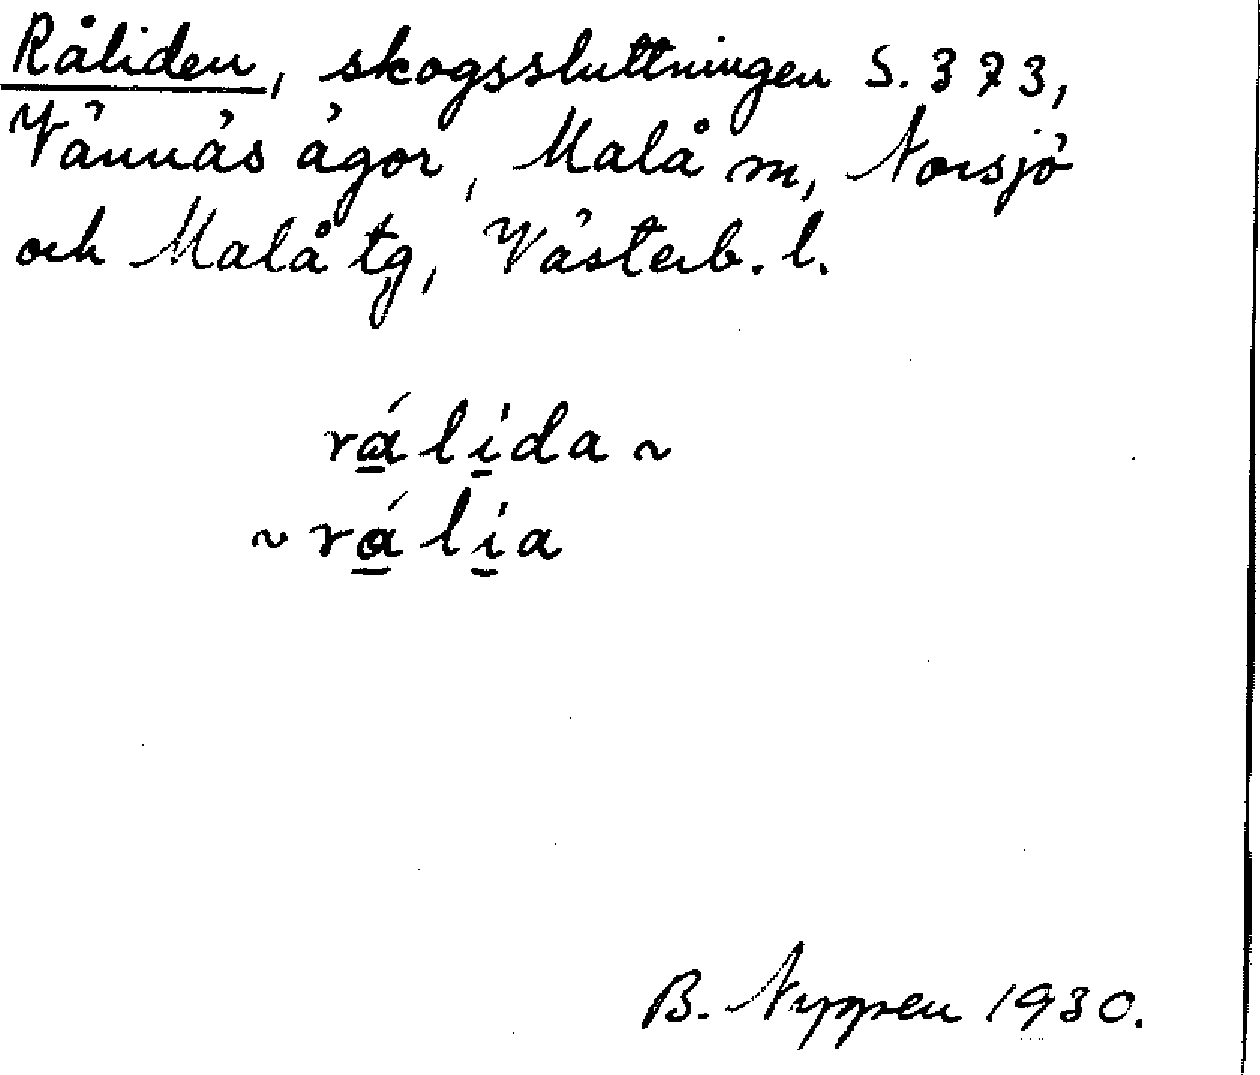 Råliden, skogssluttningen S. 373,
Vännäs ägor, Malå m, Norsjö
och Malå tg, Västerb. l.
rá̱li̱da ~
~ rá̱li̱a
B. Nyppen 1930.